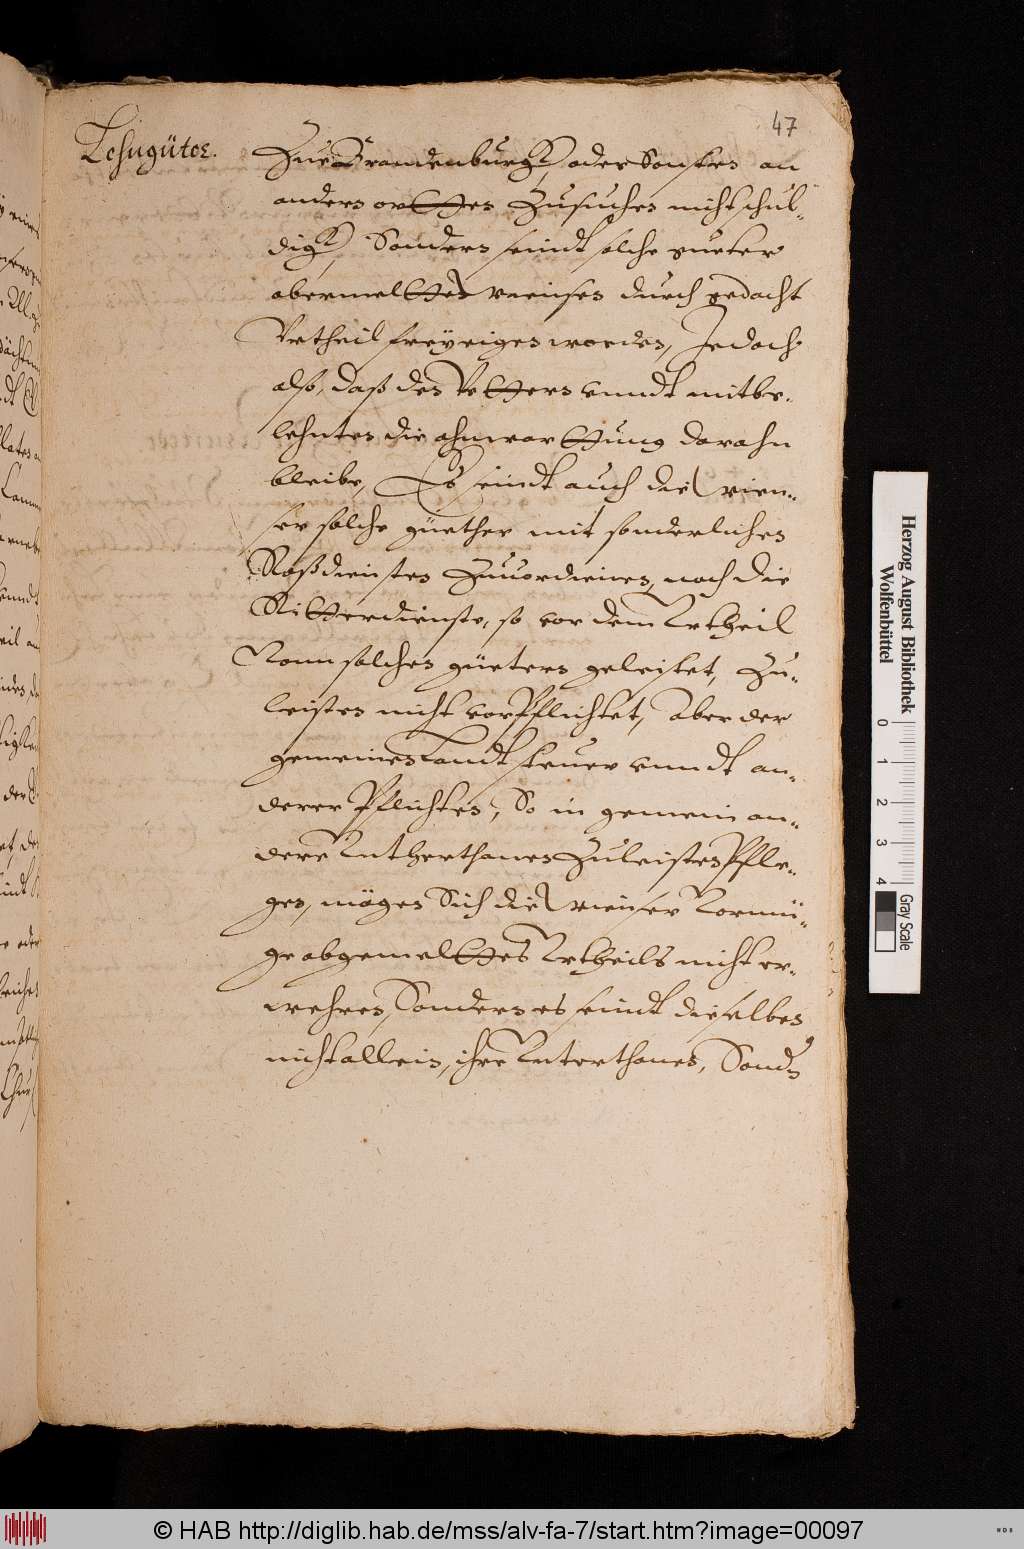 47
Lehngüter.
Zue Brandenburgk, oder Sonsten an
andern ortten Zusuchen nicht schul-
digk, Sondern seindt solche gueter
obermeltten weinsen durch gedacht
Vrtheil freyeigen worden, Jedoch
also, daß den Vettern vnndt mitbe-
lehnten die ahnwarttung darahn
bleibe, Es seindt auch die wien-
ser solche güether mit sonderlichen
Roßdiensten Zuuordienen, noch die
Ritterdienste, so vor dem Vrtheil
Vonn solchen güetern geleistet, Zu-
leisten nicht vorpflichtet, Aber der
gemeinen Landtsteuer vnndt an-
derer Pflichten, So in gemein an-
dere Vntherthanen Zuleisten Pfle-
gen, mögen Sich die wienser Vormü-
ge abgemeltten Vrtheils nicht er-
wehren, Sondern es seindt dieselben
nicht allein, ihre Vnterthanen, Sondn
Herzog August Bibliothek
Wolfenbüttel
0 1 2 3 4
Gray Scale
© HAB http://diglib.hab.de/mss/alv-fa-7/start.htm?image=00097